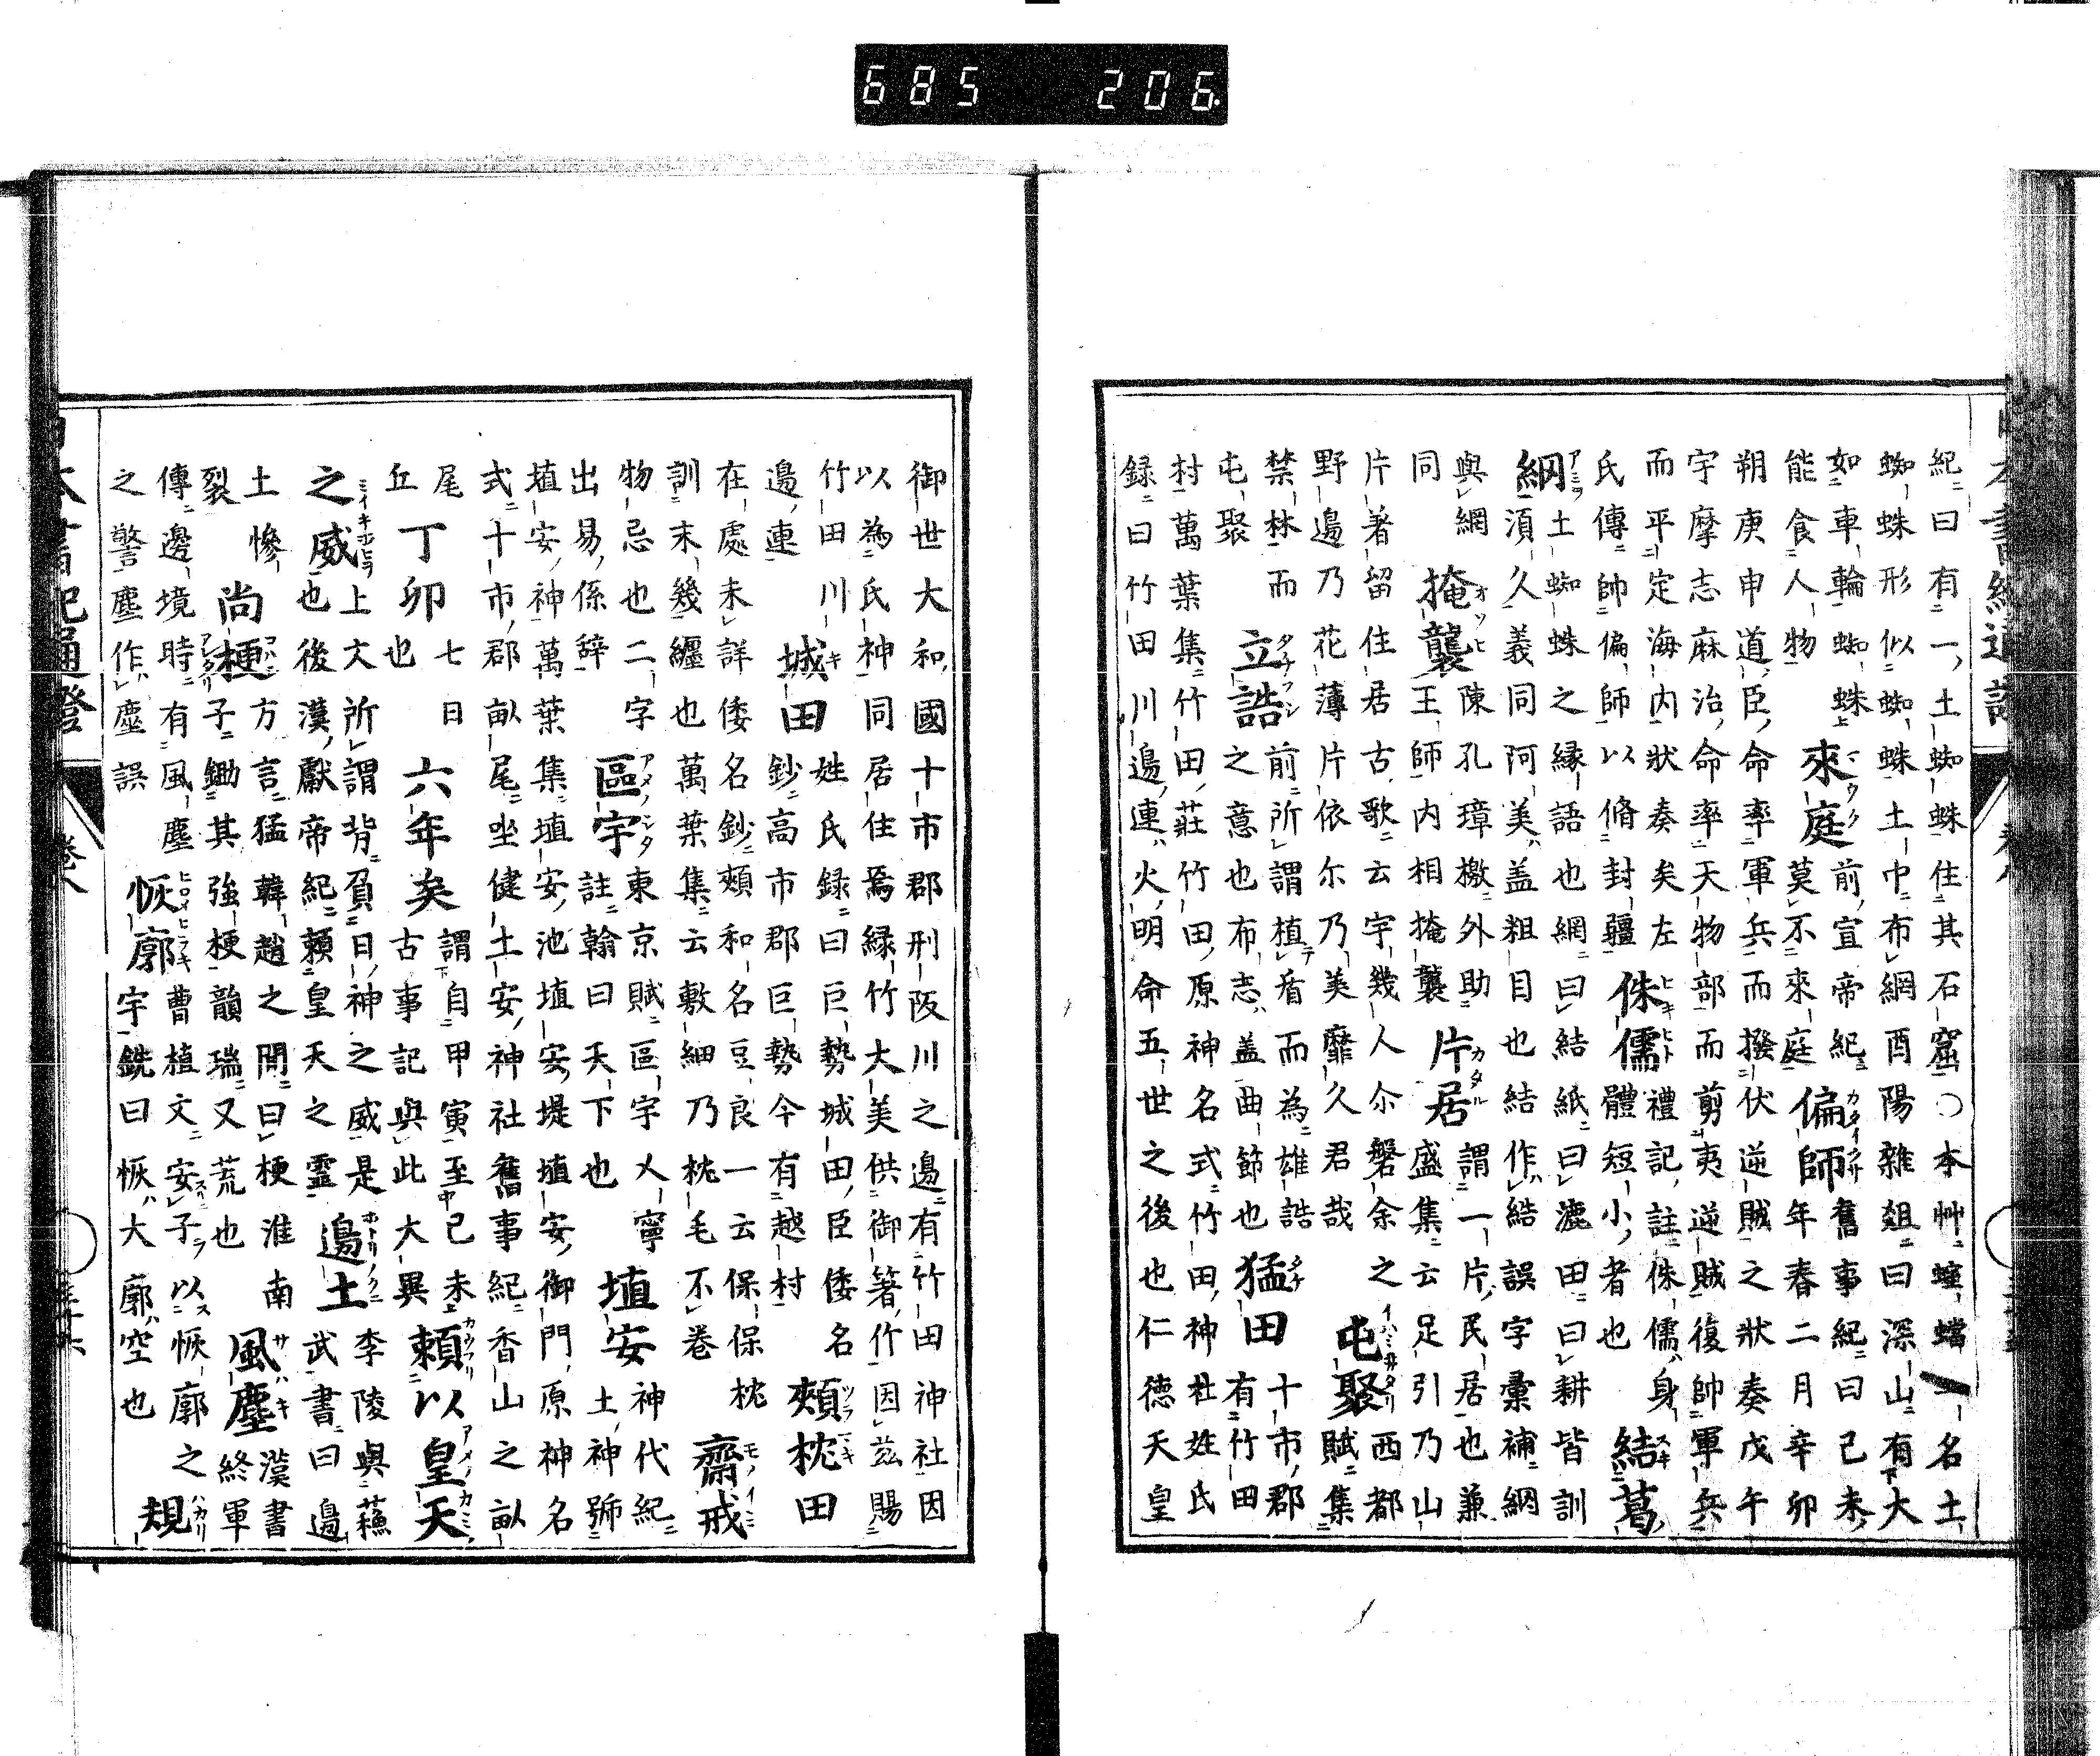 685 206
紀曰有一土蜘蛛住其石窟○本艸螲蟷一名土
蜘蛛形似蜘蛛土中布網酉陽雜俎曰深山有大
如車輪蜘蛛上能食人物來庭前宣帝紀曰己未
莫不來庭偏師舊事紀曰己未年春二月辛卯
朔庚申道臣命率軍兵而撥伏逆賊之狀奏戊午
宇摩志麻治命率天物部而剪夷逆賊復帥軍兵
而平定海内狀奏矣左侏儒禮記註侏儒身
氏傳帥偏師以脩封疆體短小者也結葛
綱土蜘蛛之縁語也網曰結紙曰漉田曰耕皆訓
須久義同阿美盖粗目也結作結誤字彙補綱
與網掩襲陳孔璋檄外助片居謂一片民居也兼
同王師内相掩襲盛集云足引乃山
片著留住居古歌云宇幾人尒磐余之屯聚西都
野邊乃花薄片依尓乃美靡久君哉賦集
禁林而立誥前所謂植盾而為雄誥猛田十市郡
屯聚之意也布志盖曲節也有竹田
村萬葉集竹田莊竹田原神名式竹田神社姓氏
録曰竹田川邊連火明命五世之後也仁徳天皇
御世大和國十市郡刑阪川之邊有竹田神社因
以為氏神同居住焉緑竹大美供御箸竹因茲賜
竹田川邊連城田姓氏録曰巨勢城田臣倭名鈔高市郡巨勢今有越村頰枕田
在處未詳倭名鈔頰和名豆良一云保保枕
訓末幾纏也萬葉集云敷細乃枕毛不卷齋戒
物忌也二字出易係辞區宇東京賦區宇乂寧註翰曰天下也埴安神代紀土神號
埴安神萬葉集埴安池埴安堤埴安御門原神名
式十市郡畝尾坐健土安神社舊事紀香山之畝
尾丘丁卯七日也六年矣謂自甲寅至己未頼以皇天
古事記與此大異
之威上文所謂背負日神之威是也後漢獻帝紀頼皇天之靈邊土李陵與蘓武書曰邊
土慘裂尚梗方言猛韓趙之間曰梗淮南子鋤其強梗韻瑞又荒也風塵漢書終軍
傳邊境時有風塵之警塵作塵誤恢廓曹植文安子以恢廓之宇銑曰恢大廓空也規
日本書紀通證
卷八
三十六